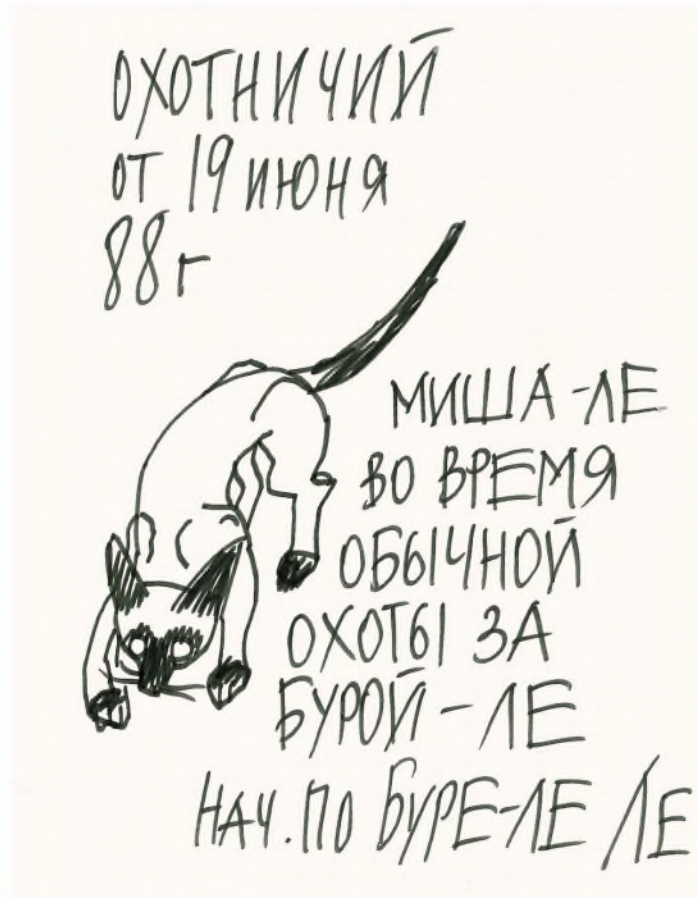 ОХОТНИЧИЙ
ОТ 19 ИЮНЯ
88 г
МИША-ЛЕ
ВО ВРЕМЯ
ОБЫЧНОЙ
ОХОТЫ ЗА
БУРОЙ-ЛЕ
НАЧ. ПО БУРЕ-ЛЕ ЛЕ